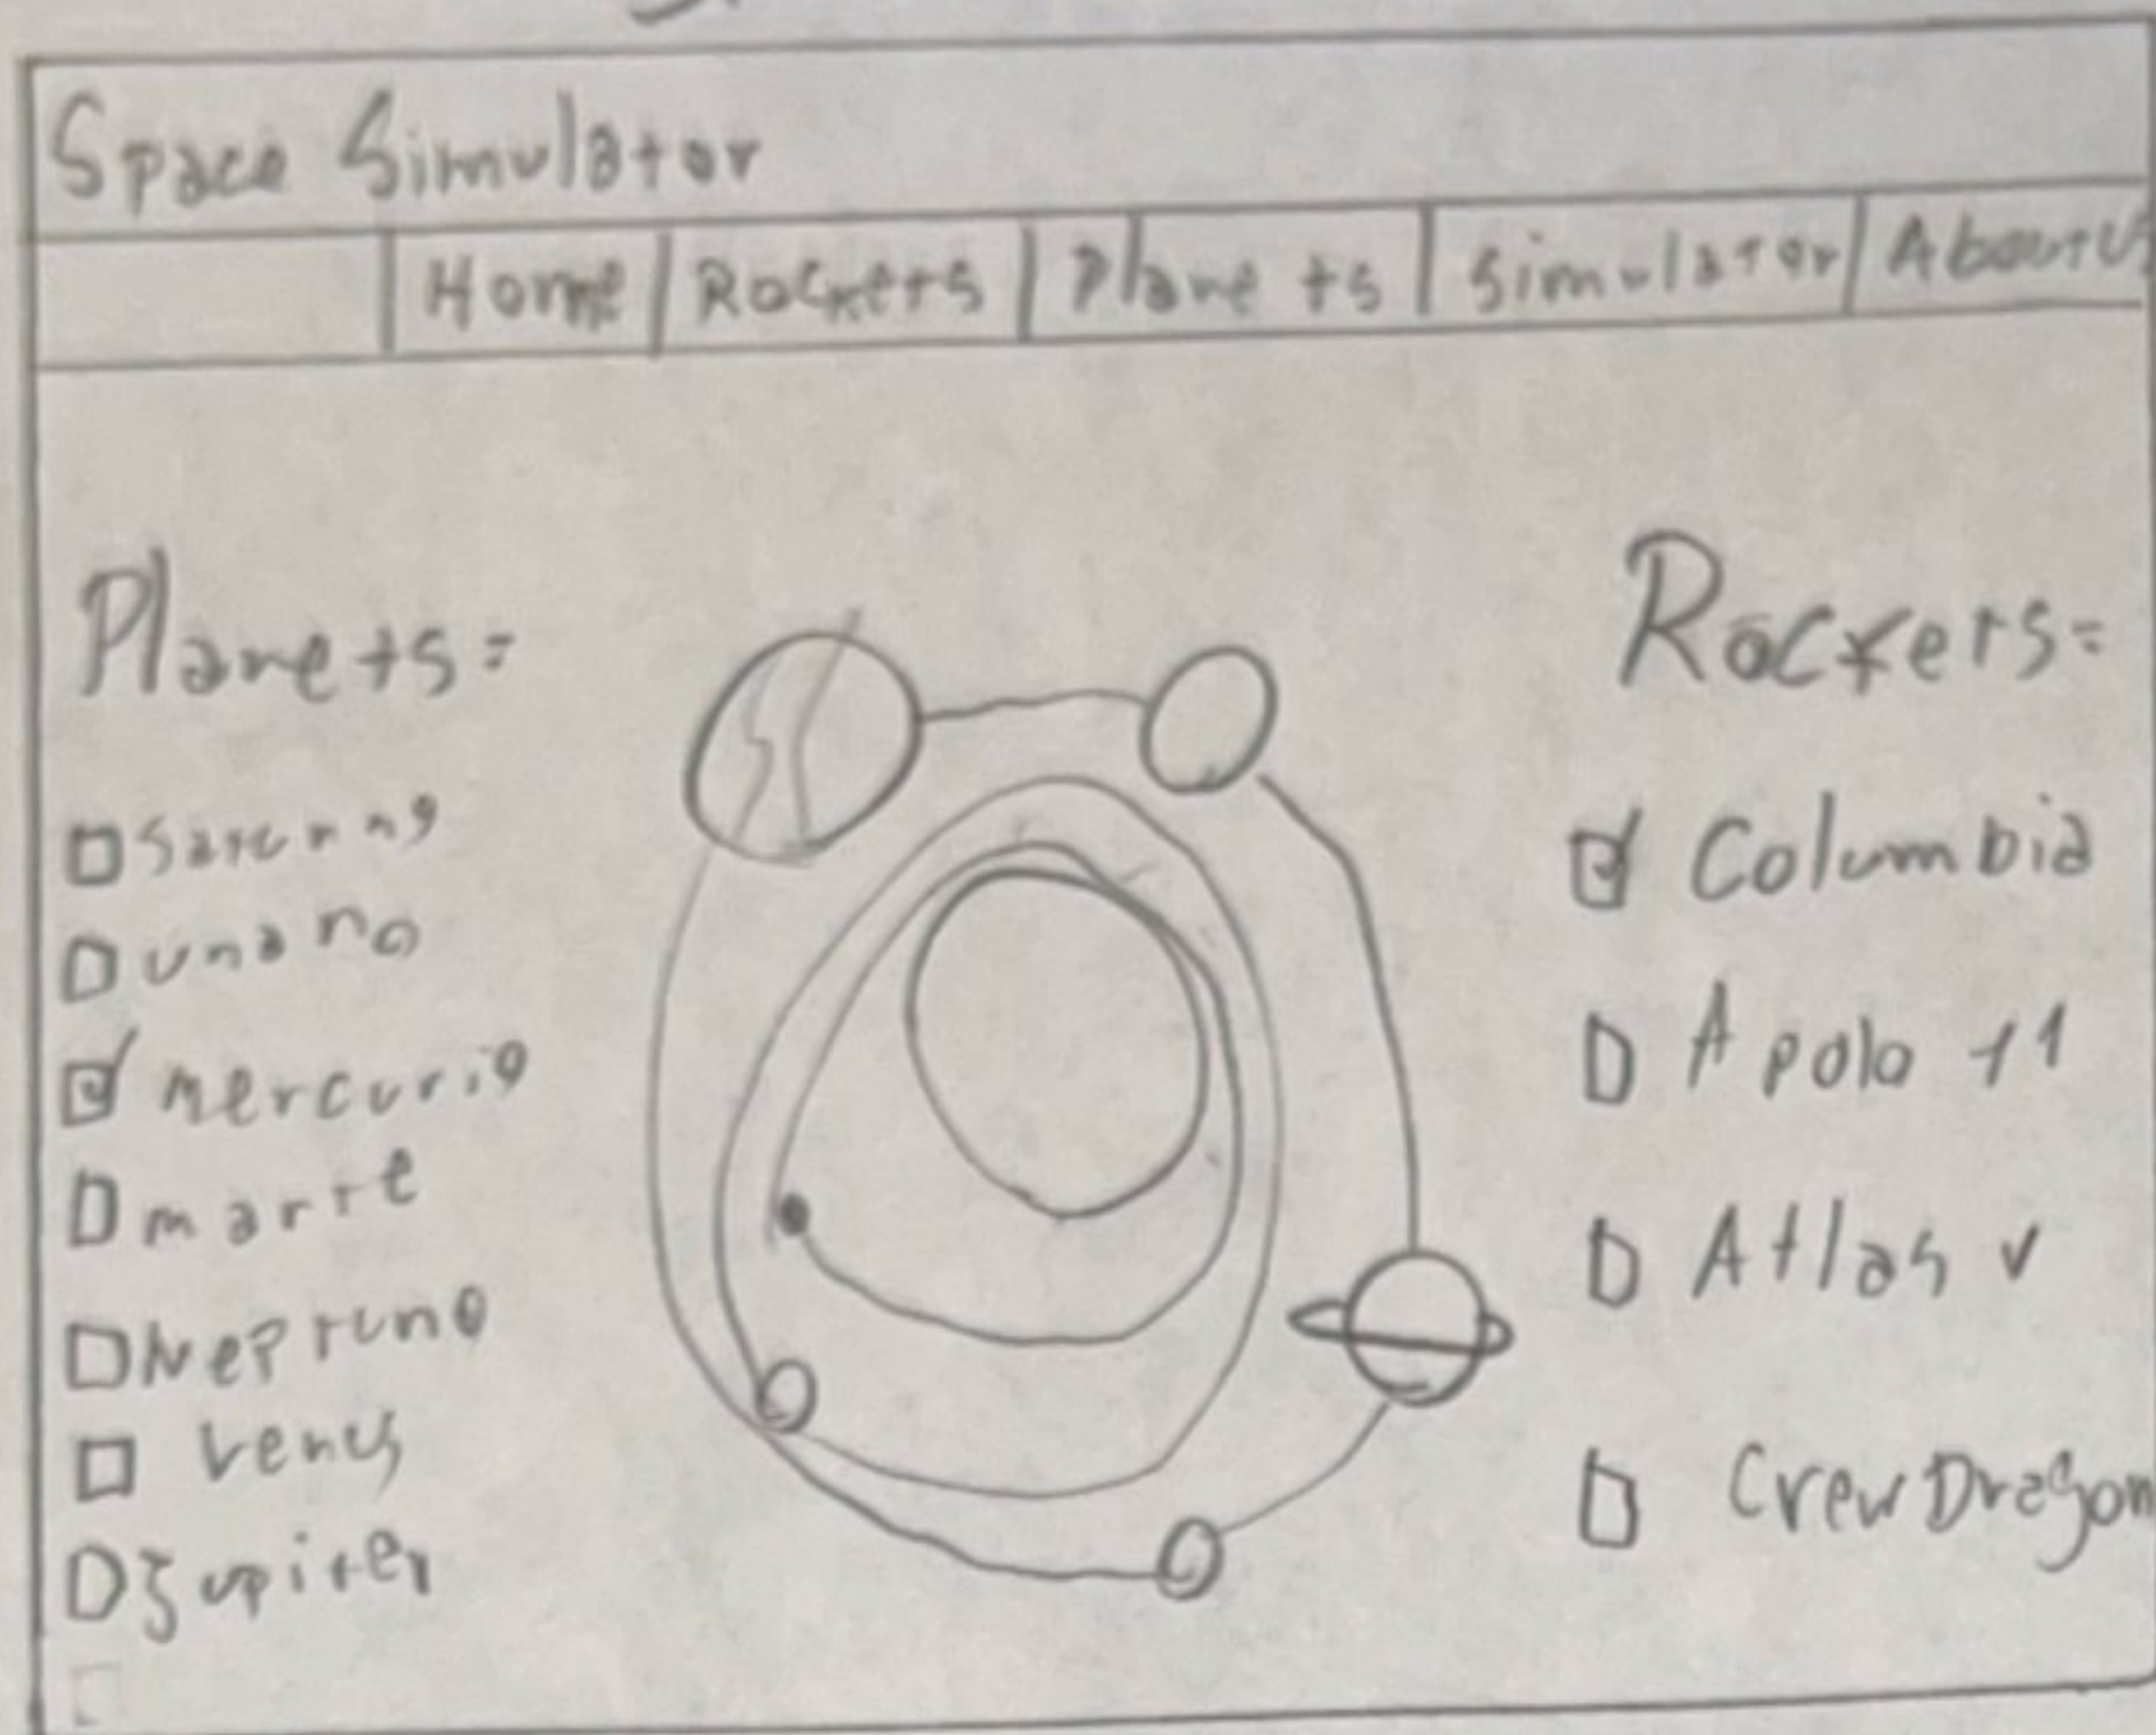 Space Simulator
Home Rockets Planets Simulator About Us
Planets:
Saturno
Urano
Mercurio
marte
Neptuno
Venus
Jupiter
Rockets:
Columbia
Apolo 11
Atlas V
Crew Dragon